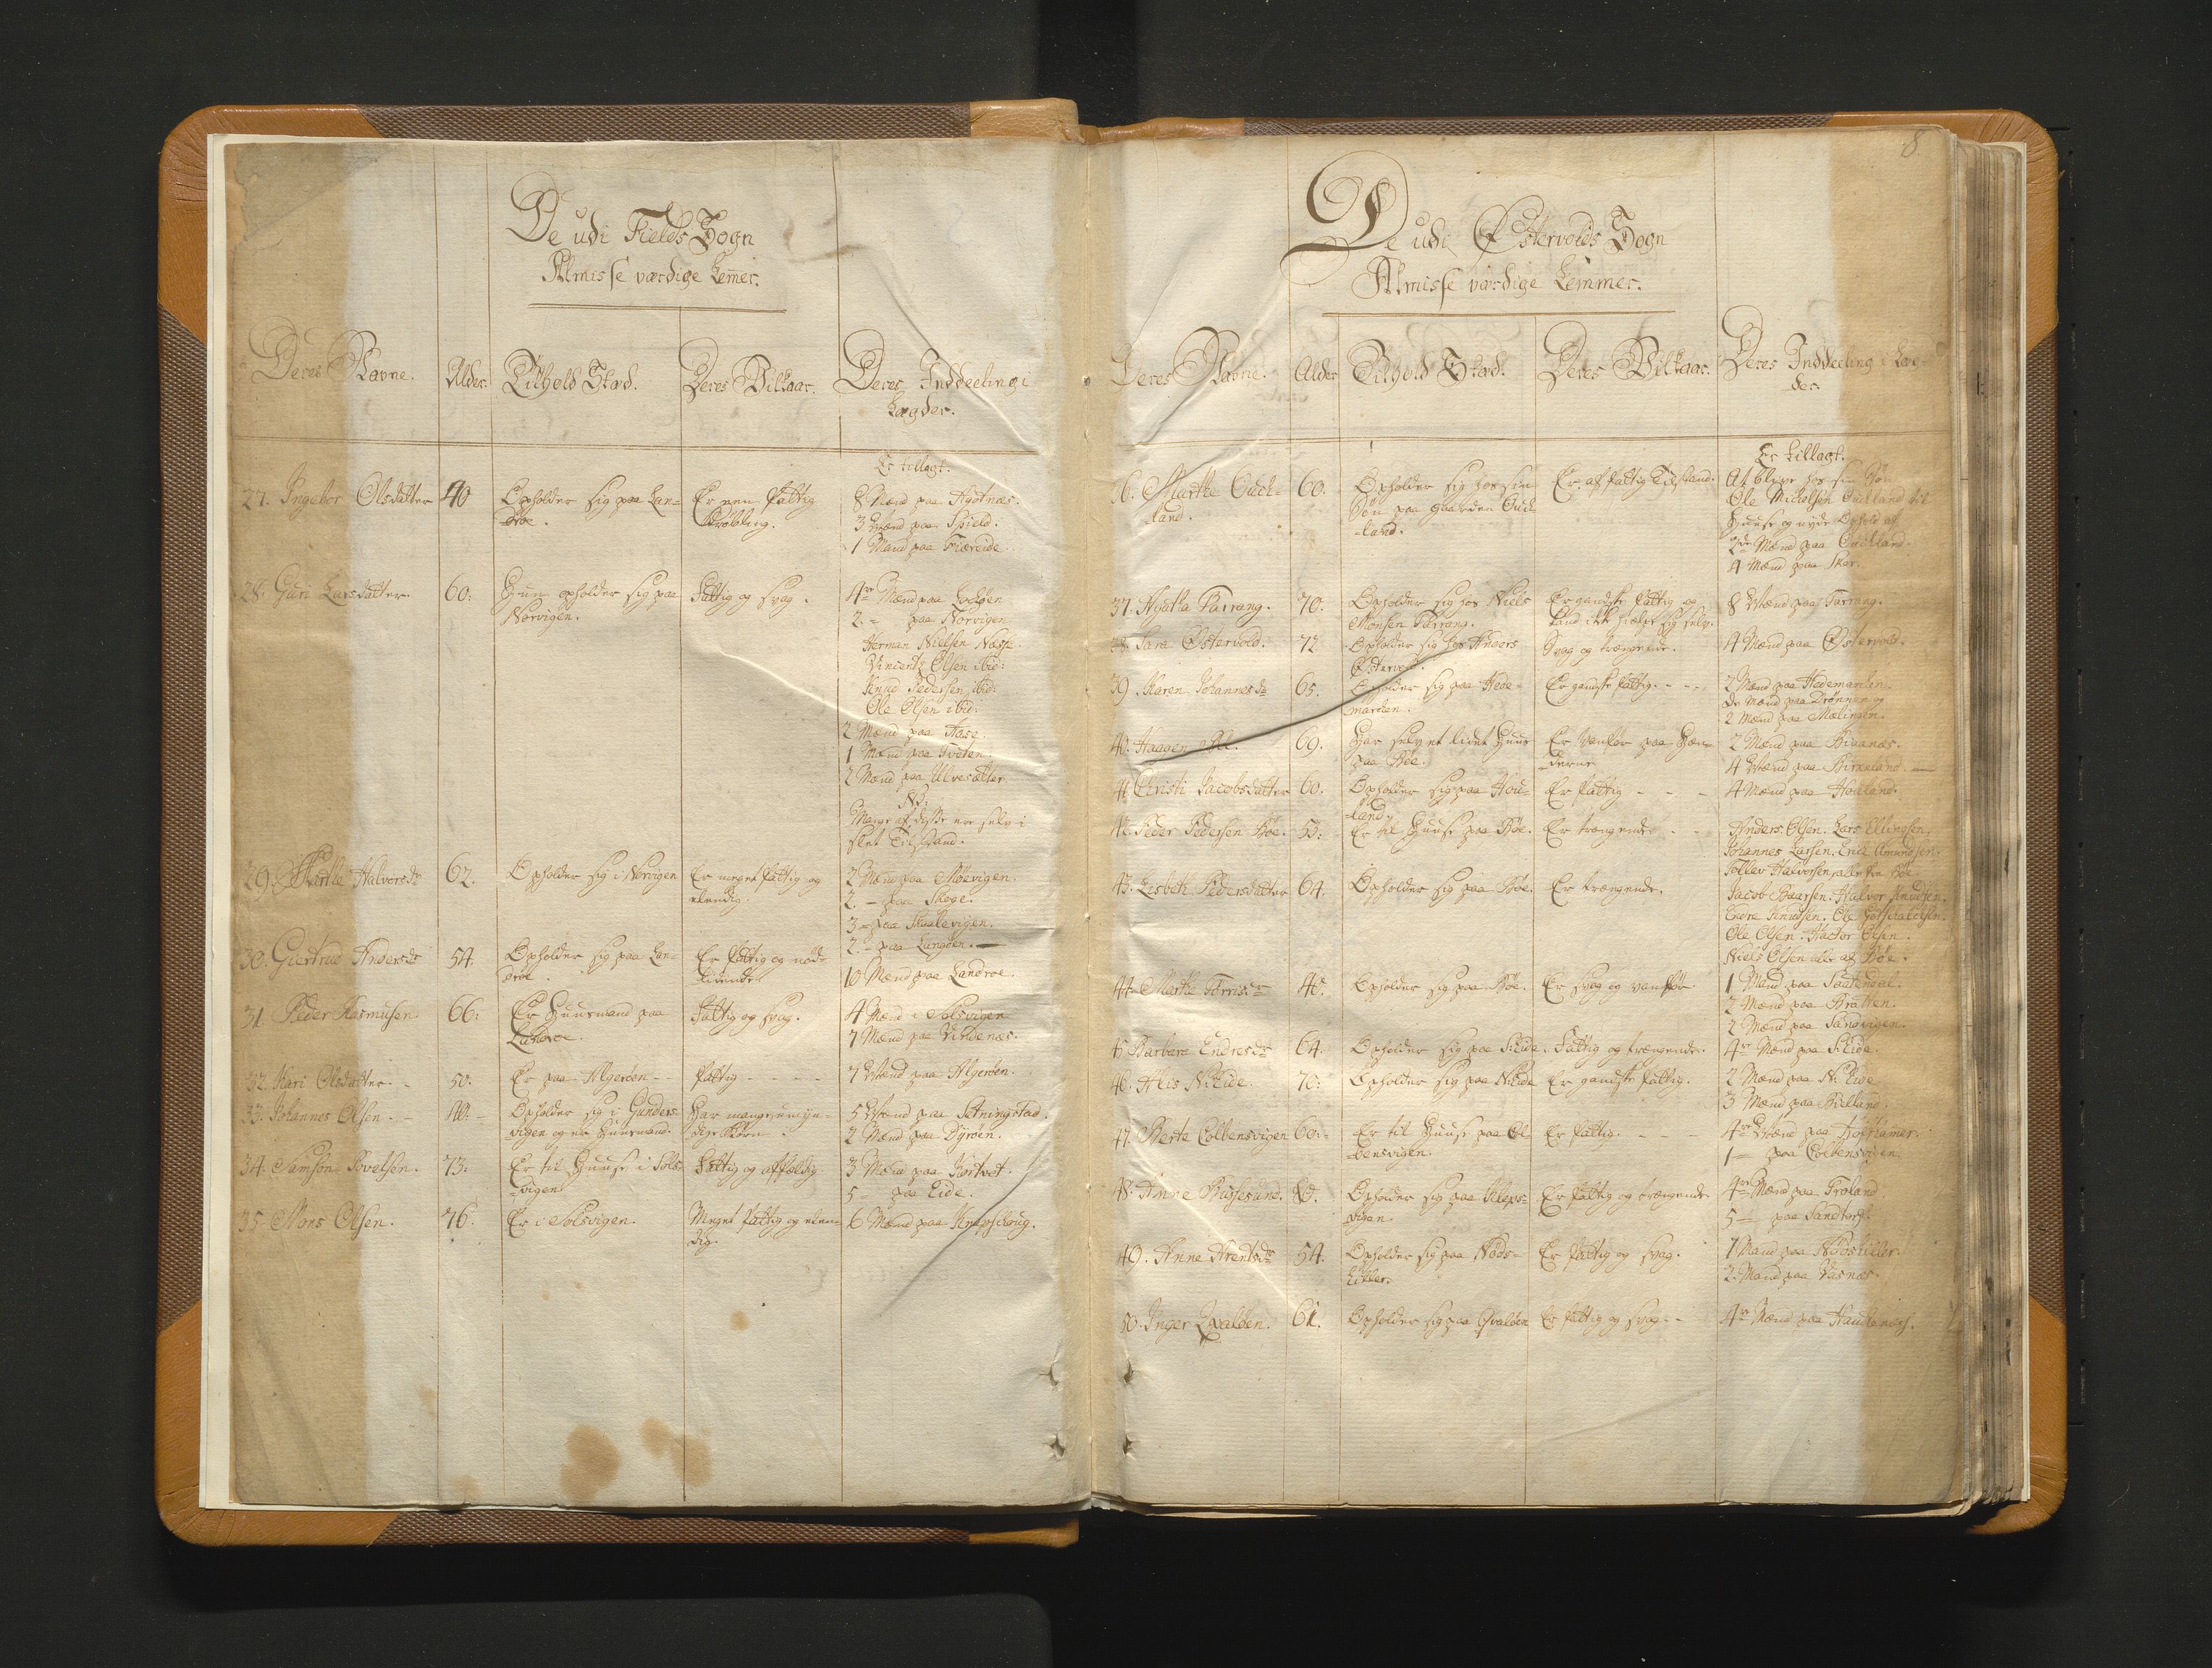 De udi Fields Sogn
Almisse værdige Lemer.
Deres Navne.
Alder.
Tilhold Stæd.
Deres Vilkaar.
Deres Inddeeling i
Lægder.
Er tillagt.
27. Ingebor Olsdatter
40
Opholder sig paa Lan-
droe.
Er een fattig
Krøbling.
8 Mænd paa Agotnæs.
3 Mænd paa Spield.
1 Mand paa Fiæreide.
28. Guri Larsdatter.
60.
Hun opholder sig paa
Norvigen.
Fattig og svag.
4re Mænd paa Lochøen
2. - paa Norvigen
Herman Nielsen Næsse.
Vincents Olsen ibid:
Knud Pedersen ibid:
Ole Olsen ibid:
2 Mænd paa Haae.
1 Mand paa Tveten.
2 Mænd paa Ulvesætter.
NB:
Mange af disse ere selv i
slet Tilstand.
29. Marthe Halvorsdr
62.
Opholder sig i Norvigen
Er meget fattig og
elendig.
2 Mænd paa Møvigen.
2. - paa Skoge.
3 - paa Skaalevigen.
2. - paa Lungøen.
30. Giertrud Andersdr
54.
Opholder sig paa Lan-
droe.
Er fattig og nød-
lidende.
10 Mænd paa Landroe.
31. Peder Rasmusen.
66:
Er Huusmand paa
Landroe.
Fattig og svag.
4 Mænd i Solsvigen
7 Mænd paa Vindenæs.
32. Kari Olsdatter. -
50.
Er paa Algerøen - -
fattig - - - -
7 Mænd paa Algerøen.
33. Johannes Olsen. -
40. -
Opholder sig i Gunders-
vigen og er Huusmand.
Har mange umyn-
dige Børn.
5 Mænd paa Setningstad.
2 Mænd paa Dyrøen.
34. Samson Povelsen.
73:
Er til Huuse i Sols-
vigen
Fattig og affældig
3 Mænd paa Kortvet.
5 - paa Eide.
35. Mons Olsen.
76.
Er i Solsvigen.
Meget fattig og elen-
dig.
6 Mænd paa Knapschoug.
8
De udi Østervolds Sogn
Almisse værdige Lemmer.
Deres Navne.
Alder
Tilhold Stæd.
Deres Vilkaar.
Deres Inddeeling i Læg-
der.
Er tillagt.
36. Marthe Ouck-
land.
60.
Opholder sig hos sin
Søn paa gaarden Ouck
-land.
Er af fattig Tilstand.
At blive hos sin Søn
Ole Mickelsen Ouckland til
Huuse og nyde Ophold af
2de Mænd paa Ouckland.
4 Mænd paa Skor.
37. Agatha Parrang.
70.
Opholder sig hos Niels
Monsen Parrang.
Er gandske fattig og
kand ikke hielpe sig selv.
8 Mænd paa Parrang.
38. Sara Østervold.
72
Opholder sig hos Anders
Østervold.
Svag og trængende.
4 Mænd paa Østervold.
39. Karen Johannesdr
65.
Opholder sig paa Hede-
marken.
Er gandske fattig. - - -
2 Mænd paa Hedemarken.
De Mænd paa Drønnen og
2 Mænd paa Mælingen.
40. Haagen
69.
Har selv et lidet Huus
paa Bøe.
Er Vanfør paa Hæn-
derne
2 Mænd paa
4 Mænd paa Birkeland.
41 Christi Jacobsdatter
60.
Opholder sig paa Hou-
land.
Er fattig - - -
4 Mænd paa Houland.
42. Peder Pedersen Bøe.
55:
Er til Huuse paa Bøe.
Er trængende - -
Anders Olsen. Lars Ellingsen.
Johannes Larsen. Erick Amundsen.
Tollev Halvorsen, alle fra Bøe.
43. Lisbeth Pedersdatter
64.
Opholder sig paa Bøe.
Er trængende.
Jacob Baarsen. Halvor Knudsen.
Endre Knudsen. Ole Gotschaldsen.
Ole Olsen. Hactor Olsen.
Niels Olsen alle af Bøe.
44. Marthe Torrisdr
48.
Opholder sig paa Bøe.
Er svag og vanfør
1 Mand paa Sautendal.
2 Mænd paa Bratten.
2 Mænd paa Sandvigen.
45 Barbara Endresdr
64.
Opholder sig paa S. Eide.
Fattig og trængende.
4re Mænd paa S. Eide.
46. Alis N. Eide.
70.
Opholder sig paa N. Eide
Er gandske fattig.
2 Mænd paa N. Eide
3 Mænd paa Bielland.
47. Berte Colbensvigen
60. -
Er til Huuse paa Col
-bensvigen.
Er fattig. - - -
4re Mænd paa Hofsamer.
1 - paa Colbensvigen.
48. Anne Buschesund.
80.
Opholder sig paa Kleps-
vigen
Er fattig og trængende
4re Mænd paa Troland
5 - paa Sandtorf.
49. Anne Arentsdr
54.
Opholder sig paa Nøds-
killer.
Er fattig og svag.
1 Mand paa Nødskiller.
2. Mand paa Vasnæs.
50. Inger Qvaløen.
61.
Opholder sig paa Qvaløen
Er fattig og svag. -
4re Mænd paa Haucknæs.